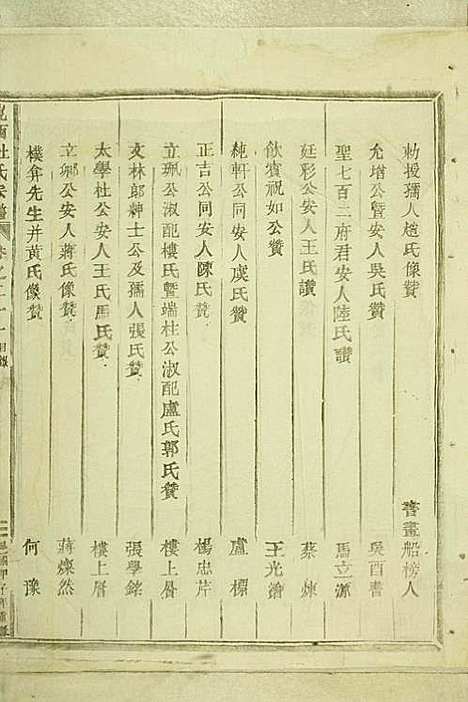 勅授孺人趙氏像贊 書畫船榜人
允增公暨安人吳氏贊 吳酉書
聖七百二府君安人陸氏讚 馬立源
廷彩公安人王氏讚 蔡煉
飲賓祝如公贊 王光濟
純軒公同安人虞氏贊 盧標
正吉公同安人陳氏贊 楊忠芹
立珮公淑配樓氏暨端柱公淑配盧氏郭氏贊 樓上層
文林郎紳士公及孺人張氏贊 張學銘
太學杜公安人王氏馬氏贊 樓上層
立鄉公安人蔣氏像贊 蔣燦然
樸弇先生并黃氏像贊 何豫
杜氏宗譜